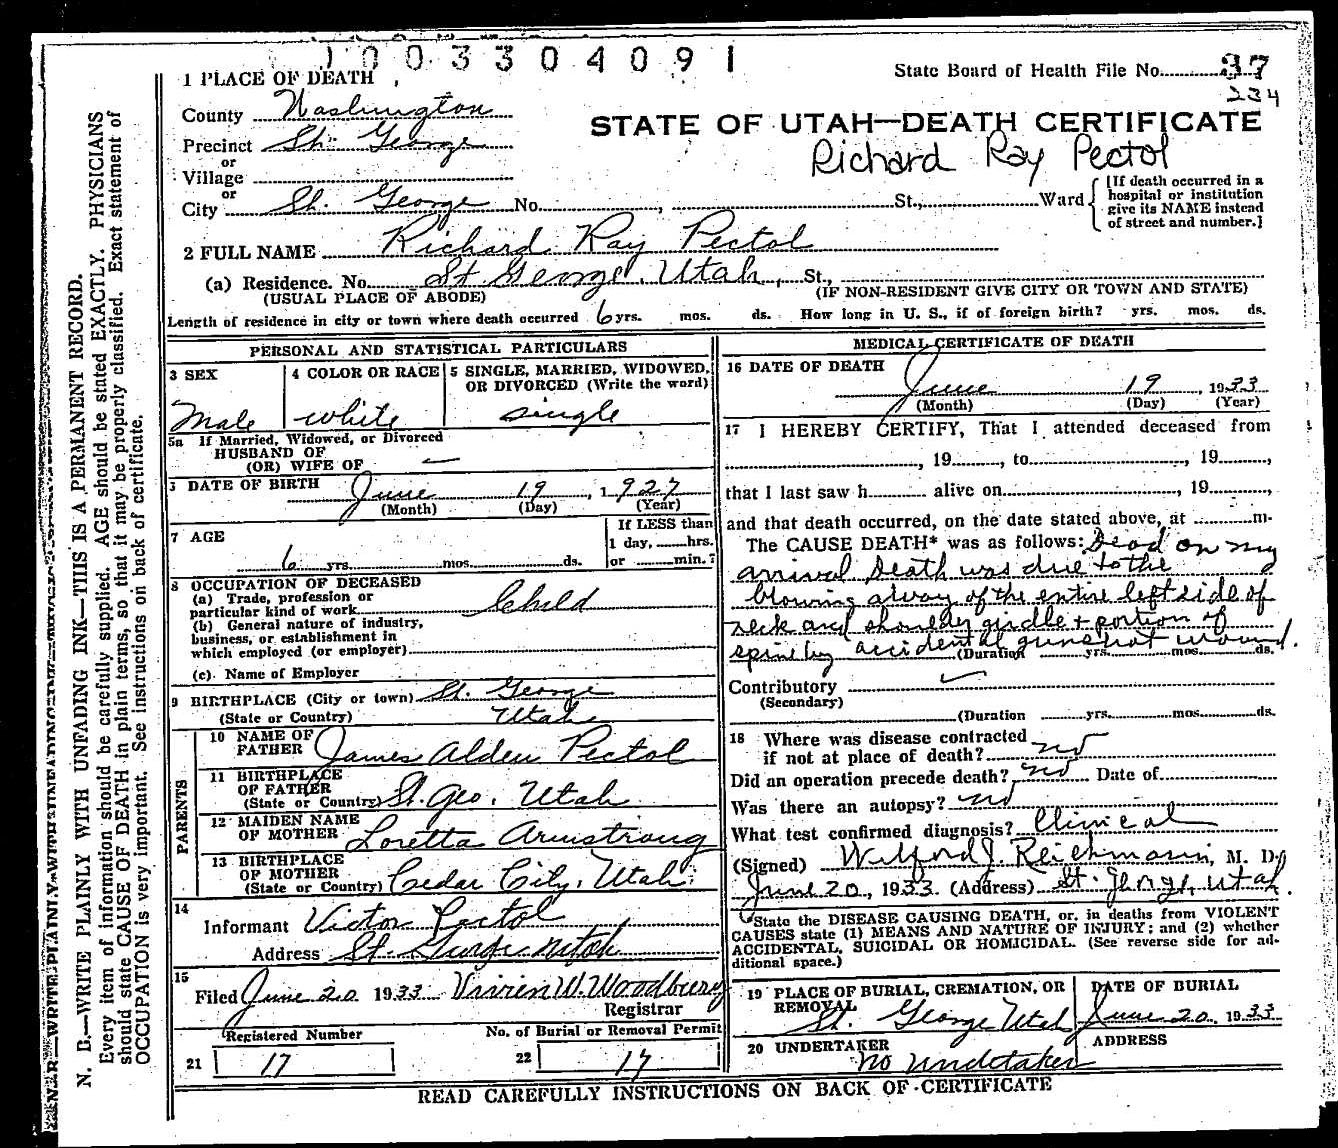 1003304091
State Board of Health File No. 37
234
1 PLACE OF DEATH
County Washington
STATE OF UTAH—DEATH CERTIFICATE
Precinct St. George
Richard Ray Pectol
or
Village
or
City St. George No. , St., Ward
[If death occurred in a
hospital or institution
give its NAME instead
of street and number.]
2 FULL NAME Richard Ray Pectol
(a) Residence. No. St George, Utah, St.,
(USUAL PLACE OF ABODE) (IF NON-RESIDENT GIVE CITY OR TOWN AND STATE)
Length of residence in city or town where death occurred 6 yrs. mos. ds. How long in U. S., if of foreign birth? yrs. mos. ds.
PERSONAL AND STATISTICAL PARTICULARS
3 SEX
Male
4 COLOR OR RACE
white
5 SINGLE, MARRIED, WIDOWED,
OR DIVORCED (Write the word)
single
5a If Married, Widowed, or Divorced
HUSBAND OF
(OR) WIFE OF
DATE OF BIRTH June 19, 1927
(Month) (Day) (Year)
7 AGE
6 yrs. mos. ds.
If LESS than
1 day, hrs.
or min.?
8 OCCUPATION OF DECEASED
(a) Trade, profession or
particular kind of work Child
(b) General nature of industry,
business, or establishment in
which employed (or employer)
(c) Name of Employer
9 BIRTHPLACE (City or town) St. George
(State or Country) Utah
PARENTS
10 NAME OF
FATHER James Alden Pectol
11 BIRTHPLACE
OF FATHER
(State or Country) St. Geo. Utah
12 MAIDEN NAME
OF MOTHER Loretta Armstrong
13 BIRTHPLACE
OF MOTHER
(State or Country) Cedar City, Utah
14
Informant Victor Pectol
Address St. George Utah
15
Filed June 20 1933 Vivien W. Woodbury
Registrar
Registered Number
21 17
No. of Burial or Removal Permit
22 17
MEDICAL CERTIFICATE OF DEATH
16 DATE OF DEATH
June 19, 1933
(Month) (Day) (Year)
17 I HEREBY CERTIFY, That I attended deceased from
, 19 , to , 19 ,
that I last saw h alive on , 19 ,
and that death occurred, on the date stated above, at m.
The CAUSE DEATH* was as follows: Dead on my
arrival Death was due to the
blowing away of the entire left side of
neck and shoulder girdle + portion of
spine by accidental gunshot wound.
(Duration yrs. mos. ds.
Contributory
(Secondary)
(Duration yrs. mos. ds.
18 Where was disease contracted
if not at place of death? no
Did an operation precede death? no Date of
Was there an autopsy? no
What test confirmed diagnosis? Clinical
(Signed) Wilford J. Reichmann, M. D.
June 20, 1933 (Address) St. George, Utah.
*State the DISEASE CAUSING DEATH, or, in deaths from VIOLENT
CAUSES state (1) MEANS AND NATURE OF INJURY; and (2) whether
ACCIDENTAL, SUICIDAL OR HOMICIDAL. (See reverse side for ad-
ditional space.)
19 PLACE OF BURIAL, CREMATION, OR
REMOVAL
St. George Utah
DATE OF BURIAL
June 20, 1933
20 UNDERTAKER
no undertaker
ADDRESS
READ CAREFULLY INSTRUCTIONS ON BACK OF CERTIFICATE
N. B.—WRITE PLAINLY WITH UNFADING INK—THIS IS A PERMANENT RECORD.
Every item of information should be carefully supplied. AGE should be stated EXACTLY. PHYSICIANS
should state CAUSE OF DEATH in plain terms, so that it may be properly classified. Exact statement of
OCCUPATION is very important. See instructions on back of certificate.